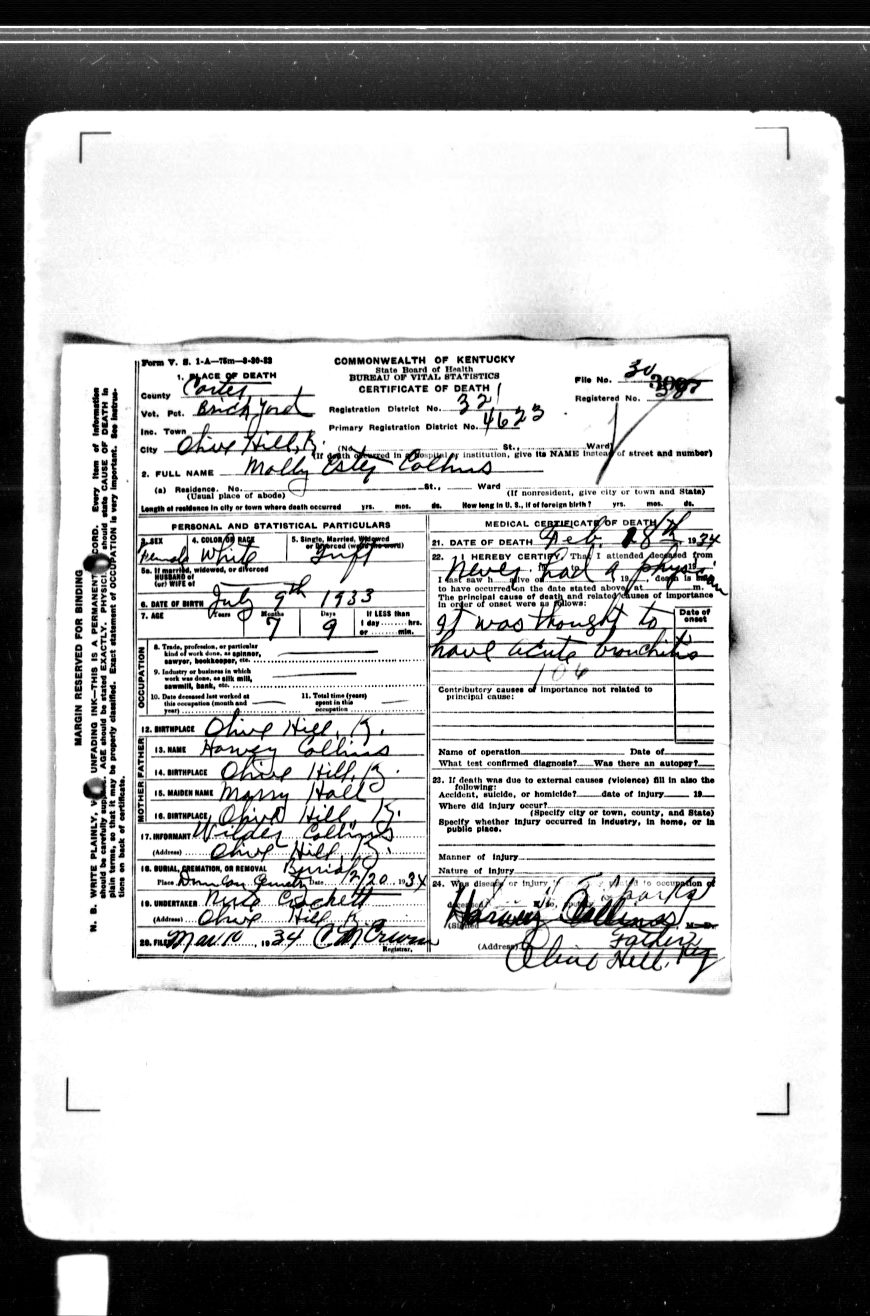 Form V. S. 1-A—75m—8-30-32
COMMONWEALTH OF KENTUCKY
State Board of Health
BUREAU OF VITAL STATISTICS
CERTIFICATE OF DEATH
File No. 30
Registered No.
1. PLACE OF DEATH
County Carter
Vot. Pct. Brick Yard
Inc. Town
City Olive Hill, K.
Registration District No. 321
Primary Registration District No. 4623
(No. St., Ward)
(If death occurred in a hospital or institution, give its NAME instead of street and number)
2. FULL NAME Molly Estep Collins
(a) Residence. No. St., Ward
(Usual place of abode) (If nonresident, give city or town and State)
Length of residence in city or town where death occurred yrs. mos. ds. How long in U. S., if of foreign birth? yrs. mos. ds.
PERSONAL AND STATISTICAL PARTICULARS
3. SEX Female
4. COLOR OR RACE White
5. Single, Married, Widowed or Divorced (write the word)
5a. If married, widowed, or divorced
HUSBAND of
(or) WIFE of
6. DATE OF BIRTH July 9th 1933
7. AGE Years Months 7 Days 9 If LESS than 1 day hrs. or min.
OCCUPATION
8. Trade, profession, or particular kind of work done, as spinner, sawyer, bookkeeper, etc.
9. Industry or business in which work was done, as silk mill, sawmill, bank, etc.
10. Date deceased last worked at this occupation (month and year)
11. Total time (years) spent in this occupation
12. BIRTHPLACE Olive Hill, K.
FATHER
13. NAME Harvey Collins
14. BIRTHPLACE Olive Hill, K.
MOTHER
15. MAIDEN NAME Marry Hall
16. BIRTHPLACE Olive Hill, K.
17. INFORMANT Collins
(Address) Olive Hill, K.
18. BURIAL, CREMATION, OR REMOVAL Burial
Place Date 1934
19. UNDERTAKER Crockett
(Address) Olive Hill K.
20. FILED Mar. 10 1934 C M Erwin
Registrar.
MEDICAL CERTIFICATE OF DEATH
21. DATE OF DEATH Feb. 18th 1934
22. I HEREBY CERTIFY, That I attended deceased from
Never had a physician
I last saw h alive on 19 , death is said
to have occurred on the date stated above, at m.
The principal cause of death and related causes of importance in order of onset were as follows:
Date of onset
It was thought to
have acute bronchitis
106
Contributory causes of importance not related to principal cause:
Name of operation Date of
What test confirmed diagnosis? Was there an autopsy?
23. If death was due to external causes (violence) fill in also the following:
Accident, suicide, or homicide? date of injury 19
Where did injury occur?
(Specify city or town, county, and State)
Specify whether injury occurred in industry, in home, or in public place.
Manner of injury
Nature of injury
24. Was disease or injury related to occupation of
deceased?
(Signed Harvey Collins M. D.
Father
(Address) Olive Hill, Ky
MARGIN RESERVED FOR BINDING
N. B. WRITE PLAINLY, UNFADING INK—THIS IS A PERMANENT RECORD. Every item of information
should be carefully supplied. AGE should be stated EXACTLY. PHYSICIANS should state CAUSE OF DEATH in
plain terms, so that it may be properly classified. Exact statement of OCCUPATION is very important. See instruc-
tions on back of certificate.